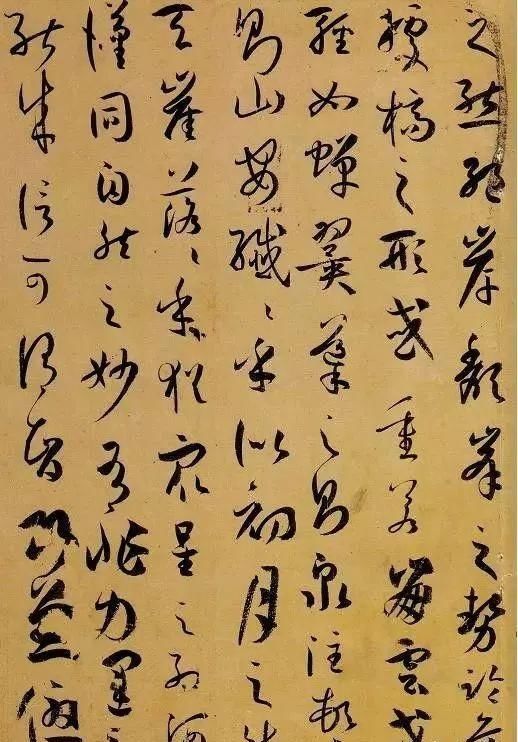 之態絕岸頹峯之勢臨危
據槁之形或重若崩雲或
輕如蟬翼導之則泉注頓
則山安纖〻乎似初月之出
天崖落〻乎猶眾星之列河
漢同自然之妙有非力運之
能成信可謂智巧兼優